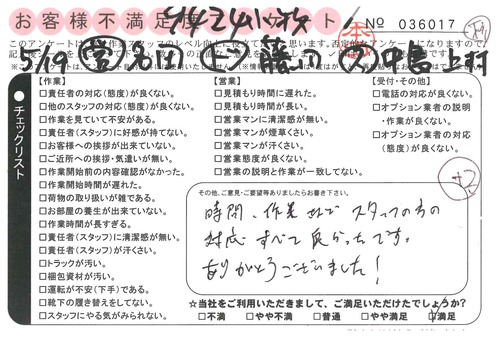 お客様不満足度アンケート
№ 036017
5/19
上村
チェックリスト
【作業】
□責任者の対応(態度)が良くない。
□他のスタッフの対応(態度)が良くない。
□作業を見ていて不安がある。
□責任者(スタッフ)に好感が持てない。
□お客様への挨拶が出来ていない。
□ご近所への挨拶・気遣いが無い。
□作業開始前の内容確認がなかった。
□作業開始時間が遅れた。
□荷物の取り扱いが雑である。
□お部屋の養生が出来ていない。
□作業時間が長すぎる。
□責任者(スタッフ)に清潔感が無い。
□責任者(スタッフ)が汗くさい。
□トラックが汚い。
□梱包資材が汚い。
□運転が不安(下手)である。
□靴下の履き替えをしてない。
□スタッフにやる気がみられない。
【営業】
□見積もり時間に遅れた。
□見積もり時間が長い。
□営業マンに清潔感が無い。
□営業マンが煙草くさい。
□営業マンが汗くさい。
□営業態度が良くない。
□営業の説明と作業が一致してない。
【受付・その他】
□電話の対応が良くない。
□オプション業者の説明
・作業が良くない。
□オプション業者の対応
(態度)が良くない。
その他、ご意見・ご要望等ありましたらお書き下さい。
時間、作業 スタッフの方の
対応すべて良かったです。
ありがとうございました!
☆当社をご利用いただきまして、ご満足いただけたでしょうか?
□不満 □やや不満 □普通 □やや満足 □満足